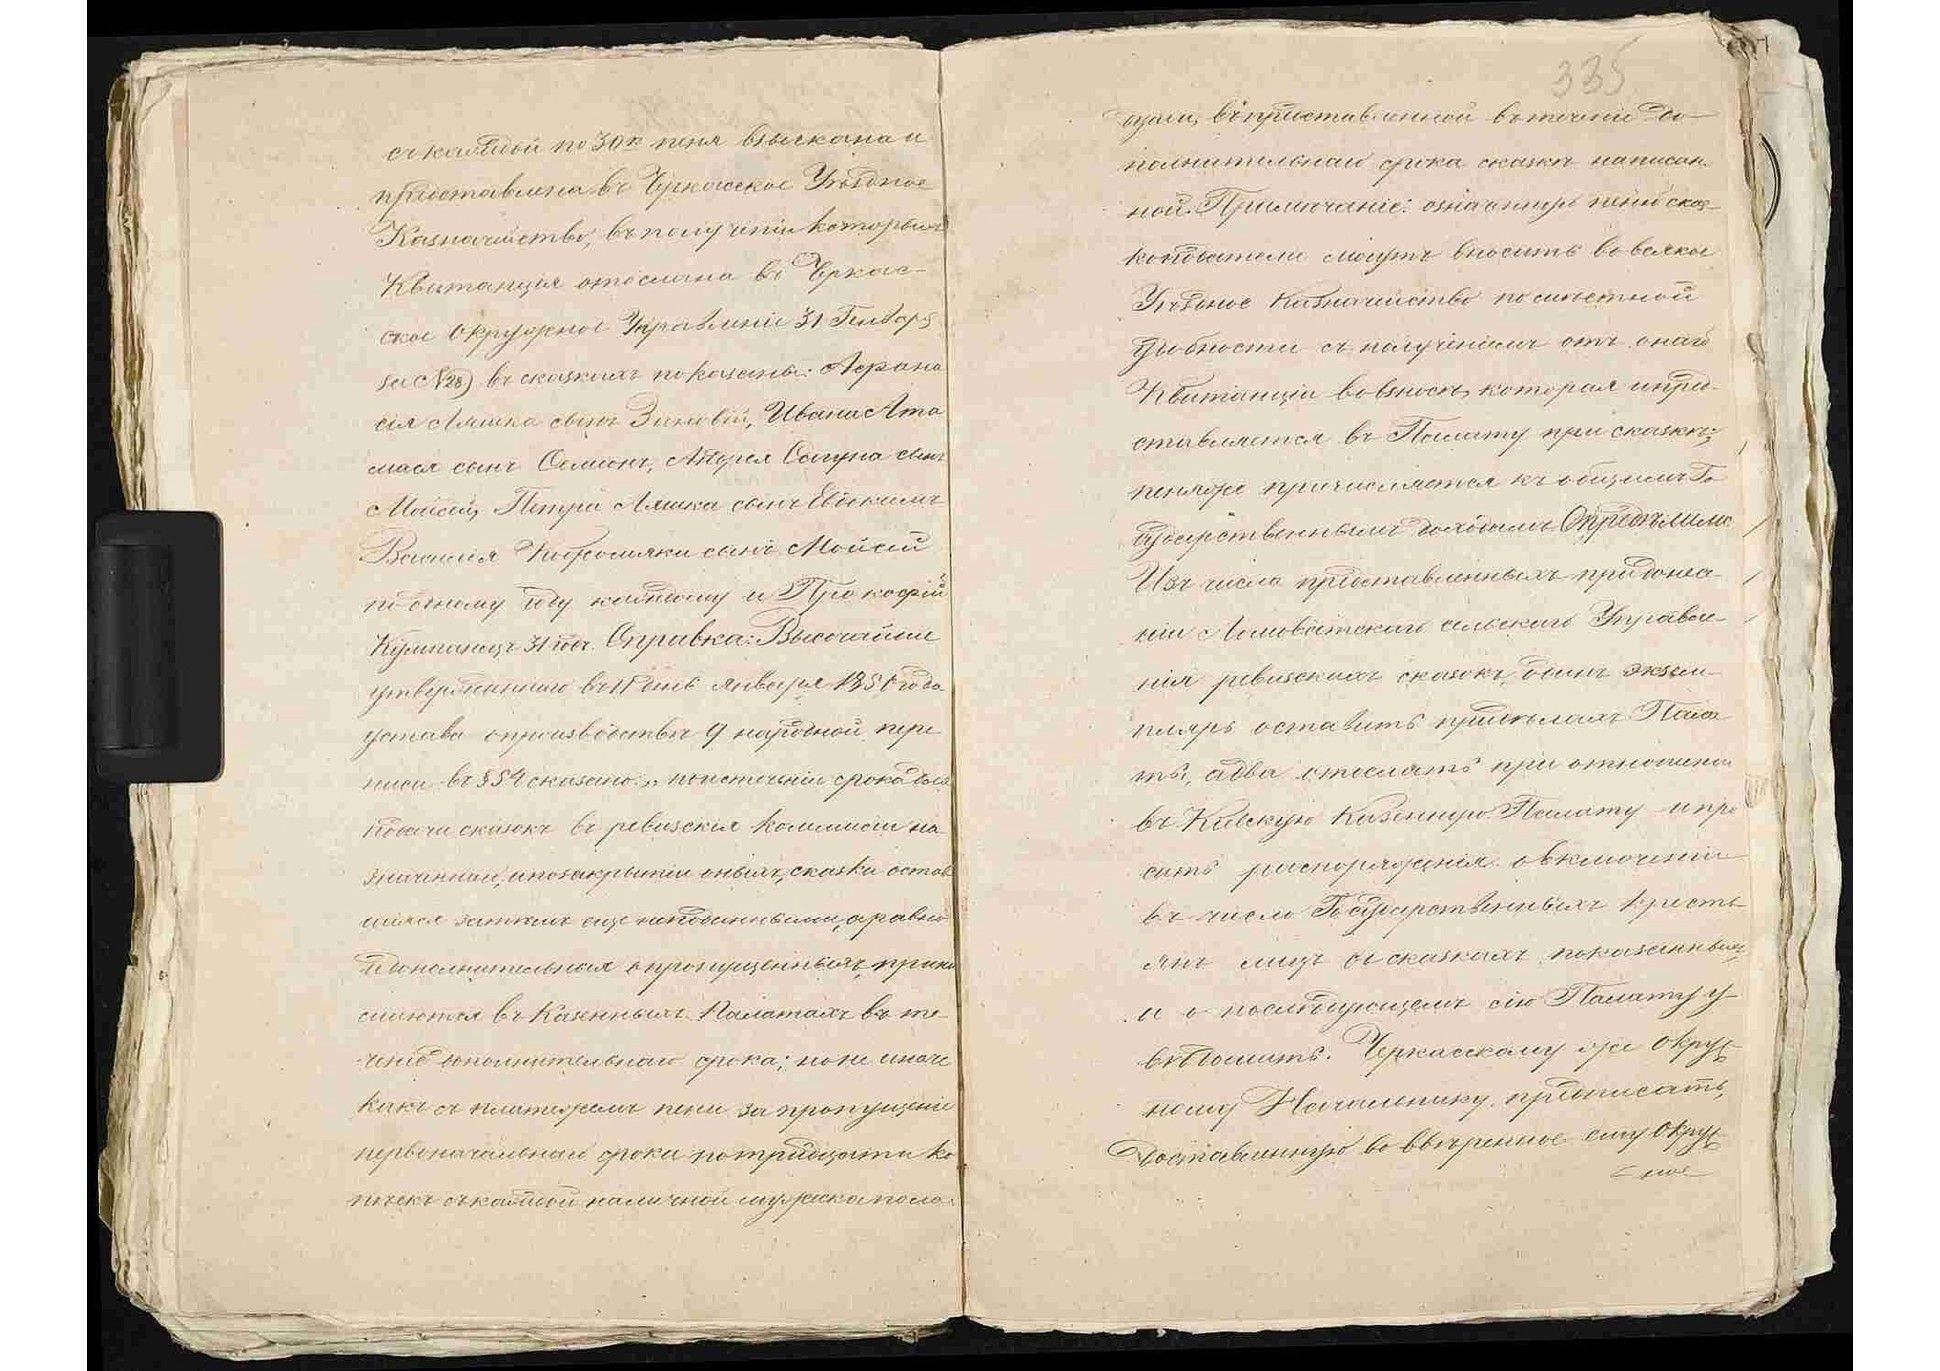 съ каждой по 30 к пеня взыскана и
представлена въ Черкасское Уѣздное
Казначейство, въ полученіи которыхъ
Квитанція отослана въ Черкас-
ское Окружное Управленіе 31 Генваря
за №28) въ сказкахъ показаны: Афана
сія Ляшка сынъ Зиновій, Ивана
сынъ Семіонъ, Андрея сынъ
Моисей, Петра Ляшка сынъ Евѣимъ
Василія сынъ Мойсей
по одному году каждому и Прокофій
31 годъ. Справка: Высочайше
утвержденнаго въ 11 день января 1850 года
устава о производствѣ 9 народной пере
писи въ §54 сказано: „ по истеченіи срока для
подачи сказокъ въ ревизскія Коммисіи на
значеннаго, и по закрытіи оныхъ, сказки остав
шіяся затѣмъ еще неподанными, а равно
и дополнительныя о пропущенныхъ, прини
маются въ Казенныхъ Палатахъ въ те-
ченіе дополнительнаго срока; но не иначе
какъ съ платежемъ пени за пропущеніе
первоначальнаго срока по тридцати ко
пѣекъ съ каждой наличной мужеска пола
335
души, въ представленной въ теченіе до-
полнительнаго срока сказкѣ написан
ной. Примѣчаніе: означенную пеню сказ-
коподатели могутъ вносить во всякое
Уѣздное Казначейство по смѣтной
удобности съ полученіемъ отъ онаго
Квитанціи во взносѣ, которая и пред-
ставляется въ Палату при сказкѣ;
пеня же причисляется къ общимъ Го
сударственнымъ доходамъ Опредѣлили:
Изъ числа представленныхъ при донесе-
ніи Ломоватскаго сельскаго Управле-
нія ревизскихъ сказокъ, одинъ экзем-
пляръ оставить при дѣлахъ Пала
ты, а два отослать при отношеніи
въ Кіевскую Казенную Палату и про
сить распоряженія о включеніи
въ число Государственныхъ Кресть
янъ лицъ въ сказкахъ показанныхъ,
и о послѣдующемъ сію Палату у-
вѣдомить. Черкасскому же Окруж
ному Начальнику предписать,
доставленную во ввѣренное ему Окруж
ное